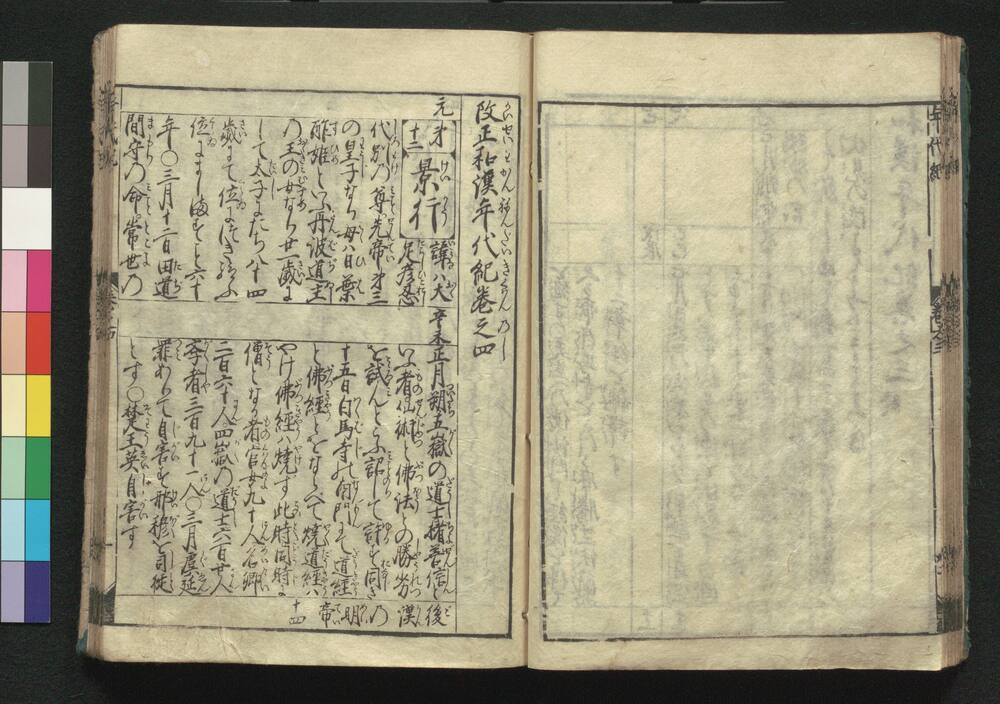 改正和漢年代紀巻之四
元
第十二
景行
諱ハ大
足彦忍
代別の尊先帝第三
の皇子なり母ハ日葉
酢媛といふ丹波道主
の王の女なり廿一歳に
して太子にたち八十四
歳にて位につき給ふ
位にまし々す六十
年〇三月十二日田道
間守の命常世の
辛未正月朔五嶽の道士褚善信と
いふ者仙術と佛法との勝劣
を試んとふ詔して許す同き
十五日白馬寺の南門にて道經
と佛經とをならべて焼道經ハ
やけ佛經ハ焼す此時同時に
僧となる者官女九十人名卿
二百六十人四嶽の道士六百廿人
三百九十一人〇三月虞延
罪ありて自害す邢穆を司徒
とす〇楚王英自害す
後漢の明帝
十四
年代紀
巻之三